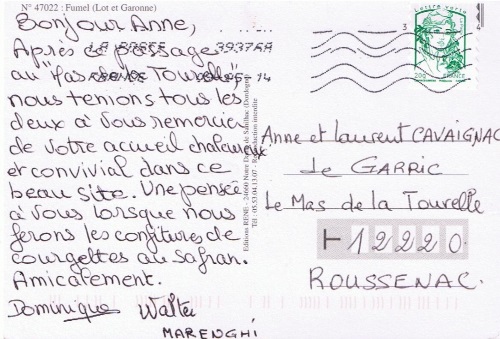 N° 47022 : Fumel (Lot et Garonne)
Bonjour Anne,
Après ce passage
au "Mas de la Tourelle",
nous tenions tous les
deux à vous remercier
de votre accueil chaleureux
et convivial dans ce
beau site. Une pensée
à vous lorsque nous
ferons les confitures de
courgettes au Safran.
Amicalement.
Dominique Walter
MARENGHI
LA POSTE 39378A
- 14
Lettre verte
20g FRANCE
Editions RENE - 24660 Notre Dame de Sanilhac (Dordogne)
Tél : 05.53.04.13.07 - Reproduction interdite
Anne et Laurent CAVAIGNAC
Le GARRIC
Le Mas de la Tourelle
12220
ROUSSENAC.